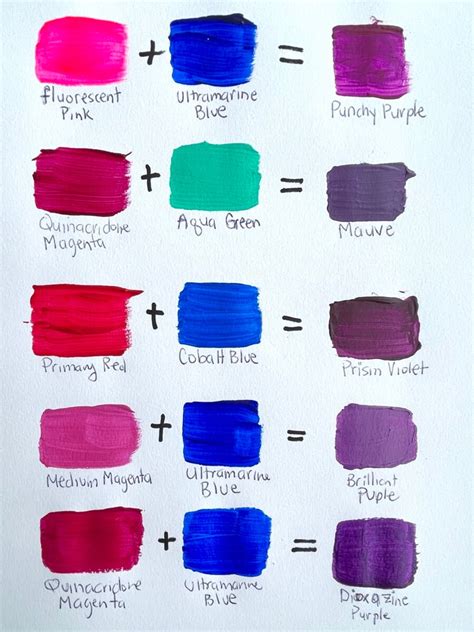 + =
fluorescent Pink
Ultramarine Blue
Punchy Purple
+ =
Quinacridone Magenta
Aqua Green
Mauve
+ =
Primary Red
Cobalt Blue
Prism Violet
+ =
Medium Magenta
Ultramarine Blue
Brilliant Puple
+ =
Quinacridone Magenta
Ultramarine Blue
Dioxazine Purple